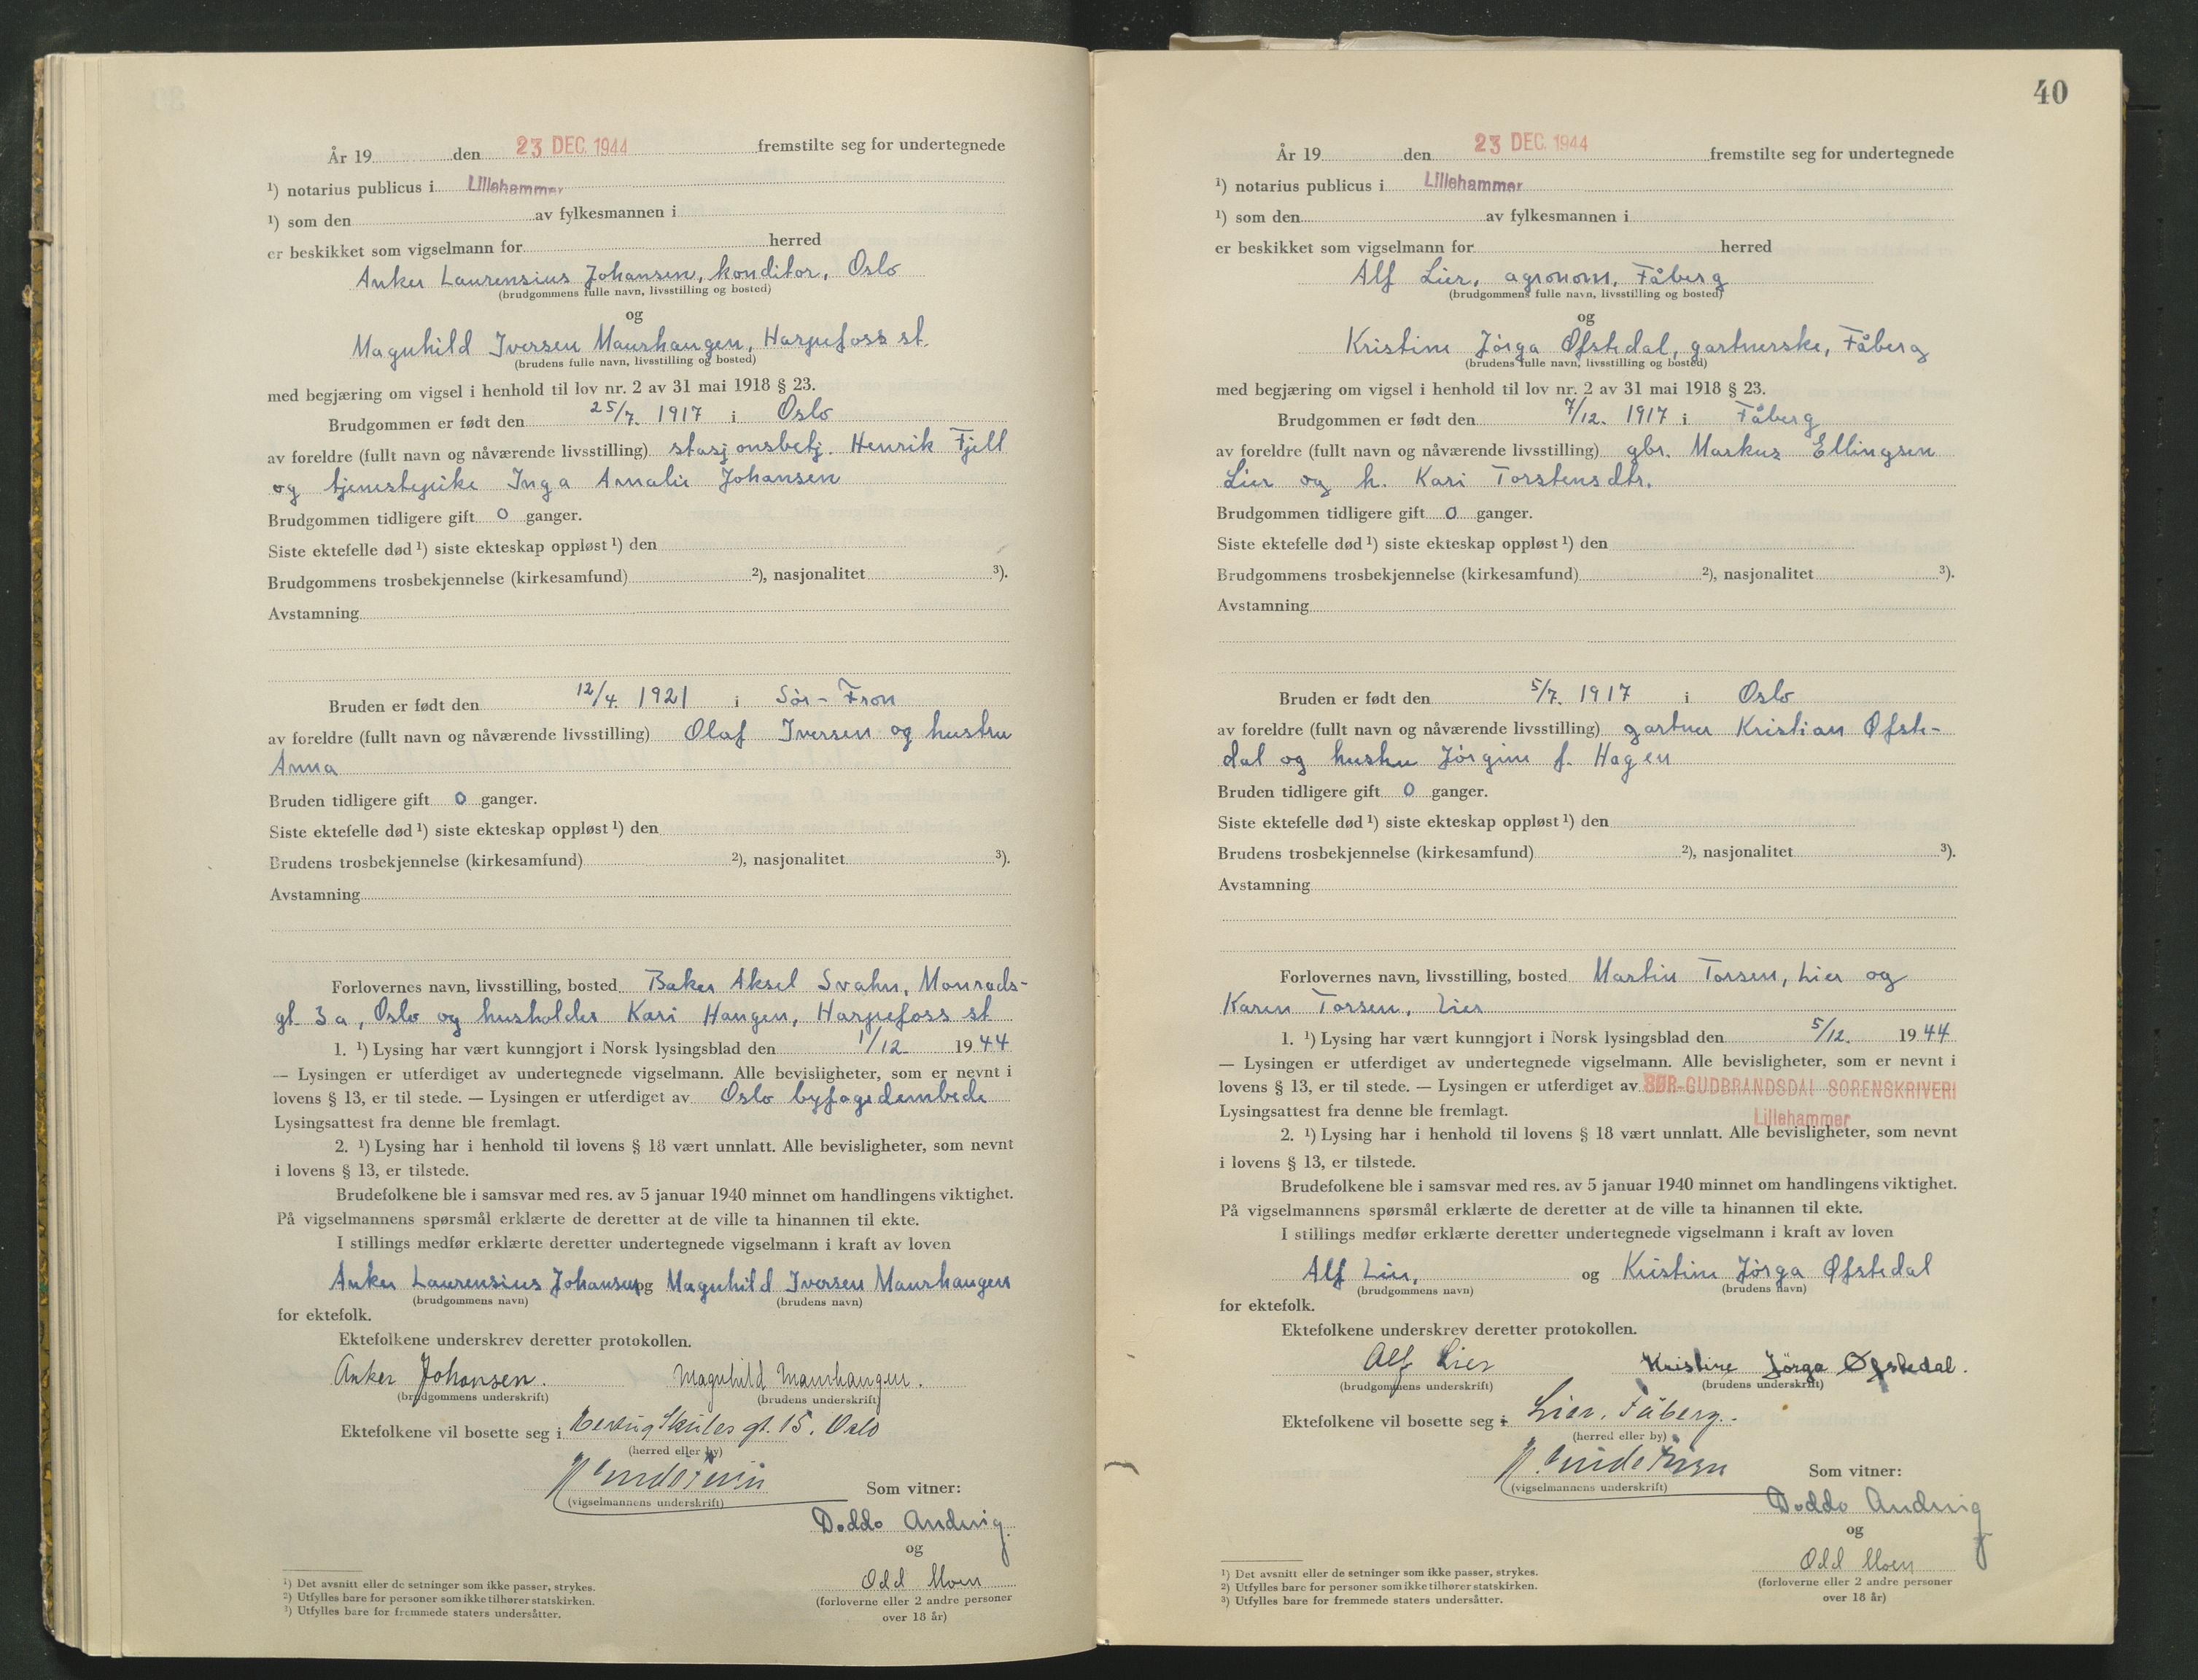 År 19 den 23 DEC. 1944 fremstilte seg for undertegnede
¹) notarius publicus i Lillehammer
¹) som den av fylkesmannen i
er beskikket som vigselmann for herred
Anker Laurensius Johansen, konditor, Oslo
(brudgommens fulle navn, livsstilling og bosted)
og
Magnhild Iversen Maurhaugen, Harpefoss st.
(brudens fulle navn, livsstilling og bosted)
med begjæring om vigsel i henhold til lov nr. 2 av 31 mai 1918 § 23.
Brudgommen er født den 25/7. 1917 i Oslo
av foreldre (fullt navn og nåværende livsstilling) stasjonsbetj. Henrik Fjell
og tjenestepike Inga Amalie Johansen
Brudgommen tidligere gift 0 ganger.
Siste ektefelle død ¹) siste ekteskap oppløst ¹) den
Brudgommens trosbekjennelse (kirkesamfund) ²), nasjonalitet ³).
Avstamning
Bruden er født den 12/4. 1921 i Sør-Fron
av foreldre (fullt navn og nåværende livsstilling) Olaf Iversen og hustru
Anna
Bruden tidligere gift 0 ganger.
Siste ektefelle død ¹) siste ekteskap oppløst ¹) den
Brudens trosbekjennelse (kirkesamfund) ²), nasjonalitet ³).
Avstamning
Forlovernes navn, livsstilling, bosted Baker Aksel Svahn, Monrads-
gt. 3a, Oslo og husholder Kari Haugen, Harpefoss st
1. ¹) Lysing har vært kunngjort i Norsk lysingsblad den 1/12. 1944
— Lysingen er utferdiget av undertegnede vigselmann. Alle bevisligheter, som er nevnt i
lovens § 13, er til stede. — Lysingen er utferdiget av Oslo byfogdembede
Lysingsattest fra denne ble fremlagt.
2. ¹) Lysing har i henhold til lovens § 18 vært unnlatt. Alle bevisligheter, som nevnt
i lovens § 13, er tilstede.
Brudefolkene ble i samsvar med res. av 5 januar 1940 minnet om handlingens viktighet.
På vigselmannens spørsmål erklærte de deretter at de ville ta hinannen til ekte.
I stillings medfør erklærte deretter undertegnede vigselmann i kraft av loven
Anker Laurensius Johansen og Magnhild Iversen Maurhaugen
(brudgommens navn) (brudens navn)
for ektefolk.
Ektefolkene underskrev deretter protokollen.
Anker Johansen. Magnhild Maurhaugen.
(brudgommens underskrift) (brudens underskrift)
Ektefolkene vil bosette seg i Hertug Skules gt. 15. Oslo
(herred eller by)
Som vitner:
(vigselmannens underskrift)
Doddo Andvig
og
Odd Moen
(forloverne eller 2 andre personer
over 18 år)
¹) Det avsnitt eller de setninger som ikke passer, strykes.
²) Utfylles bare for personer som ikke tilhører statskirken.
³) Utfylles bare for fremmede staters undersåtter.
40
År 19 den 23 DEC. 1944 fremstilte seg for undertegnede
¹) notarius publicus i Lillehammer
¹) som den av fylkesmannen i
er beskikket som vigselmann for herred
Alf Lier, agronom, Fåberg
(brudgommens fulle navn, livsstilling og bosted)
og
Kristine Jørga Øfstedal, gartnerske, Fåberg
(brudens fulle navn, livsstilling og bosted)
med begjæring om vigsel i henhold til lov nr. 2 av 31 mai 1918 § 23.
Brudgommen er født den 7/12. 1917 i Fåberg
av foreldre (fullt navn og nåværende livsstilling) gbr. Markus Ellingsen
Lier og h. Kari Torstensdtr.
Brudgommen tidligere gift 0 ganger.
Siste ektefelle død ¹) siste ekteskap oppløst ¹) den
Brudgommens trosbekjennelse (kirkesamfund) ²), nasjonalitet ³).
Avstamning
Bruden er født den 5/7. 1917 i Oslo
av foreldre (fullt navn og nåværende livsstilling) gartner Kristian Øfste-
dal og hustru Jørgine f. Hagen
Bruden tidligere gift 0 ganger.
Siste ektefelle død ¹) siste ekteskap oppløst ¹) den
Brudens trosbekjennelse (kirkesamfund) ²), nasjonalitet ³).
Avstamning
Forlovernes navn, livsstilling, bosted Martin Torsen, Lier og
Karen Torsen, Lier
1. ¹) Lysing har vært kunngjort i Norsk lysingsblad den 5/12. 1944
— Lysingen er utferdiget av undertegnede vigselmann. Alle bevisligheter, som er nevnt i
lovens § 13, er til stede. — Lysingen er utferdiget av SØR-GUDBRANDSDAL SORENSKRIVERI
Lysingsattest fra denne ble fremlagt. Lillehammer
2. ¹) Lysing har i henhold til lovens § 18 vært unnlatt. Alle bevisligheter, som nevnt
i lovens § 13, er tilstede.
Brudefolkene ble i samsvar med res. av 5 januar 1940 minnet om handlingens viktighet.
På vigselmannens spørsmål erklærte de deretter at de ville ta hinannen til ekte.
I stillings medfør erklærte deretter undertegnede vigselmann i kraft av loven
Alf Lier, og Kristine Jørga Øfstedal
(brudgommens navn) (brudens navn)
for ektefolk.
Ektefolkene underskrev deretter protokollen.
Alf Lier Kristine Jørga Øfstedal.
(brudgommens underskrift) (brudens underskrift)
Ektefolkene vil bosette seg i Lier, Fåberg.
(herred eller by)
Som vitner:
(vigselmannens underskrift)
Doddo Andvig
og
Odd Moen
(forloverne eller 2 andre personer
over 18 år)
¹) Det avsnitt eller de setninger som ikke passer, strykes.
²) Utfylles bare for personer som ikke tilhører statskirken.
³) Utfylles bare for fremmede staters undersåtter.